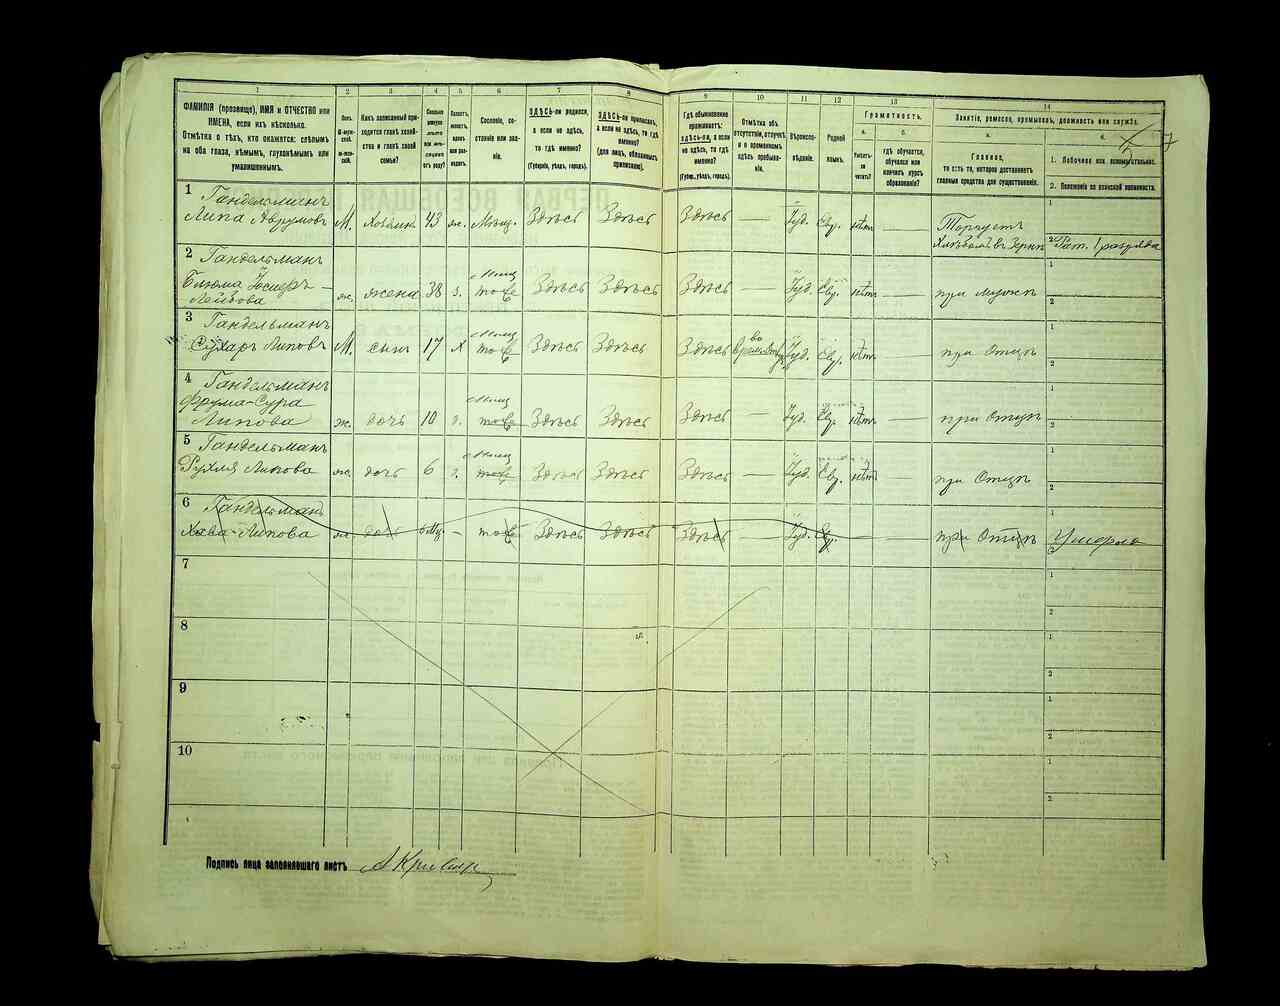 1 2 3 4 5 6 7 8 9 10 11 12 13 14
ФАМИЛІЯ (прозвище), ИМЯ и ОТЧЕСТВО или
ИМЕНА, если ихъ нѣсколько.
Отмѣтка о тѣхъ, кто окажется: слѣпымъ
на оба глаза, нѣмымъ, глухонѣмымъ или
умалишеннымъ.
Полъ.
М-мужской.
Ж-женскій.
Какъ записанный приходится
главѣ хозяйства
и главѣ своей
семьи?
Сколько
минуло
лѣтъ
или мѣсяцевъ
отъ роду?
Холостъ,
женатъ,
вдовъ
или разведенъ.
Сословіе, состояніе
или званіе.
ЗДѢСЬ-ли родился,
а если не здѣсь,
то гдѣ именно?
(Губернія, уѣздъ, городъ).
ЗДѢСЬ-ли приписанъ,
а если не здѣсь, то гдѣ
именно?
(для лицъ, обязанныхъ
припискою).
Гдѣ обыкновенно
проживаетъ:
здѣсь-ли, а если
не здѣсь, то гдѣ
именно?
(Губерн., уѣздъ, городъ).
Отмѣтка объ
отсутствіи, отлучкѣ
и о временномъ
здѣсь пребываніи.
Вѣроисповѣданіе.
Родной
языкъ.
Грамотность.
а.
Умѣетъ-ли
читать?
б.
гдѣ обучается,
обучался или
кончилъ курсъ
образованія?
Занятіе, ремесло, промыселъ, должность или служба.
а.
Главное,
то есть то, которое доставляетъ
главныя средства для существованія.
б.
1. Побочное или вспомогательное.
2. Положеніе по воинской повинности.
7
1 Гандельманъ
Липа Аврумовъ М. Хозяинъ 43 ж. Мѣщ. Здѣсь Здѣсь Здѣсь — Іуд. Евр. нѣтъ — Торгуетъ
Хлѣбомъ въ Зернѣ 1 2 Рат. 1 разряда
2 Гандельманъ
Лейбова ж. жена 38 з. Мѣщ тоже Здѣсь Здѣсь Здѣсь — Іуд. Евр. нѣтъ — при мужѣ 1 2
3 Гандельманъ
Сухаръ Липовъ М. сынъ 17 х Мѣщ тоже Здѣсь Здѣсь Здѣсь Іуд. Евр. нѣтъ — при Отцѣ 1 2
4 Гандельманъ
Фрума-Сура
Липова ж. дочь 10 Мѣщ тоже Здѣсь Здѣсь Здѣсь — Іуд. Евр. нѣтъ — при Отцѣ 1 2
5 Гандельманъ
Рухля Липова ж. дочь 6 Мѣщ тоже Здѣсь Здѣсь Здѣсь — Іуд. Евр. нѣтъ — при Отцѣ 1 2
6 Гандельман
Хава-Липова ж. дочь — тоже Здѣсь Здѣсь Здѣсь — Іуд. Евр. — — при Отцѣ 1 Умерла 2
7 1 2
8 1 2
9 1 2
10 1 2
Подпись лица заполнявшаго листъ